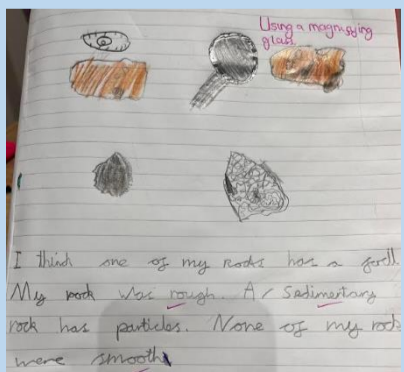 Using a magnifying
glass
I think one of my rocks has a
My rock was rough. A/ Sedimentary
rock has particles. None of my rock
were smooth